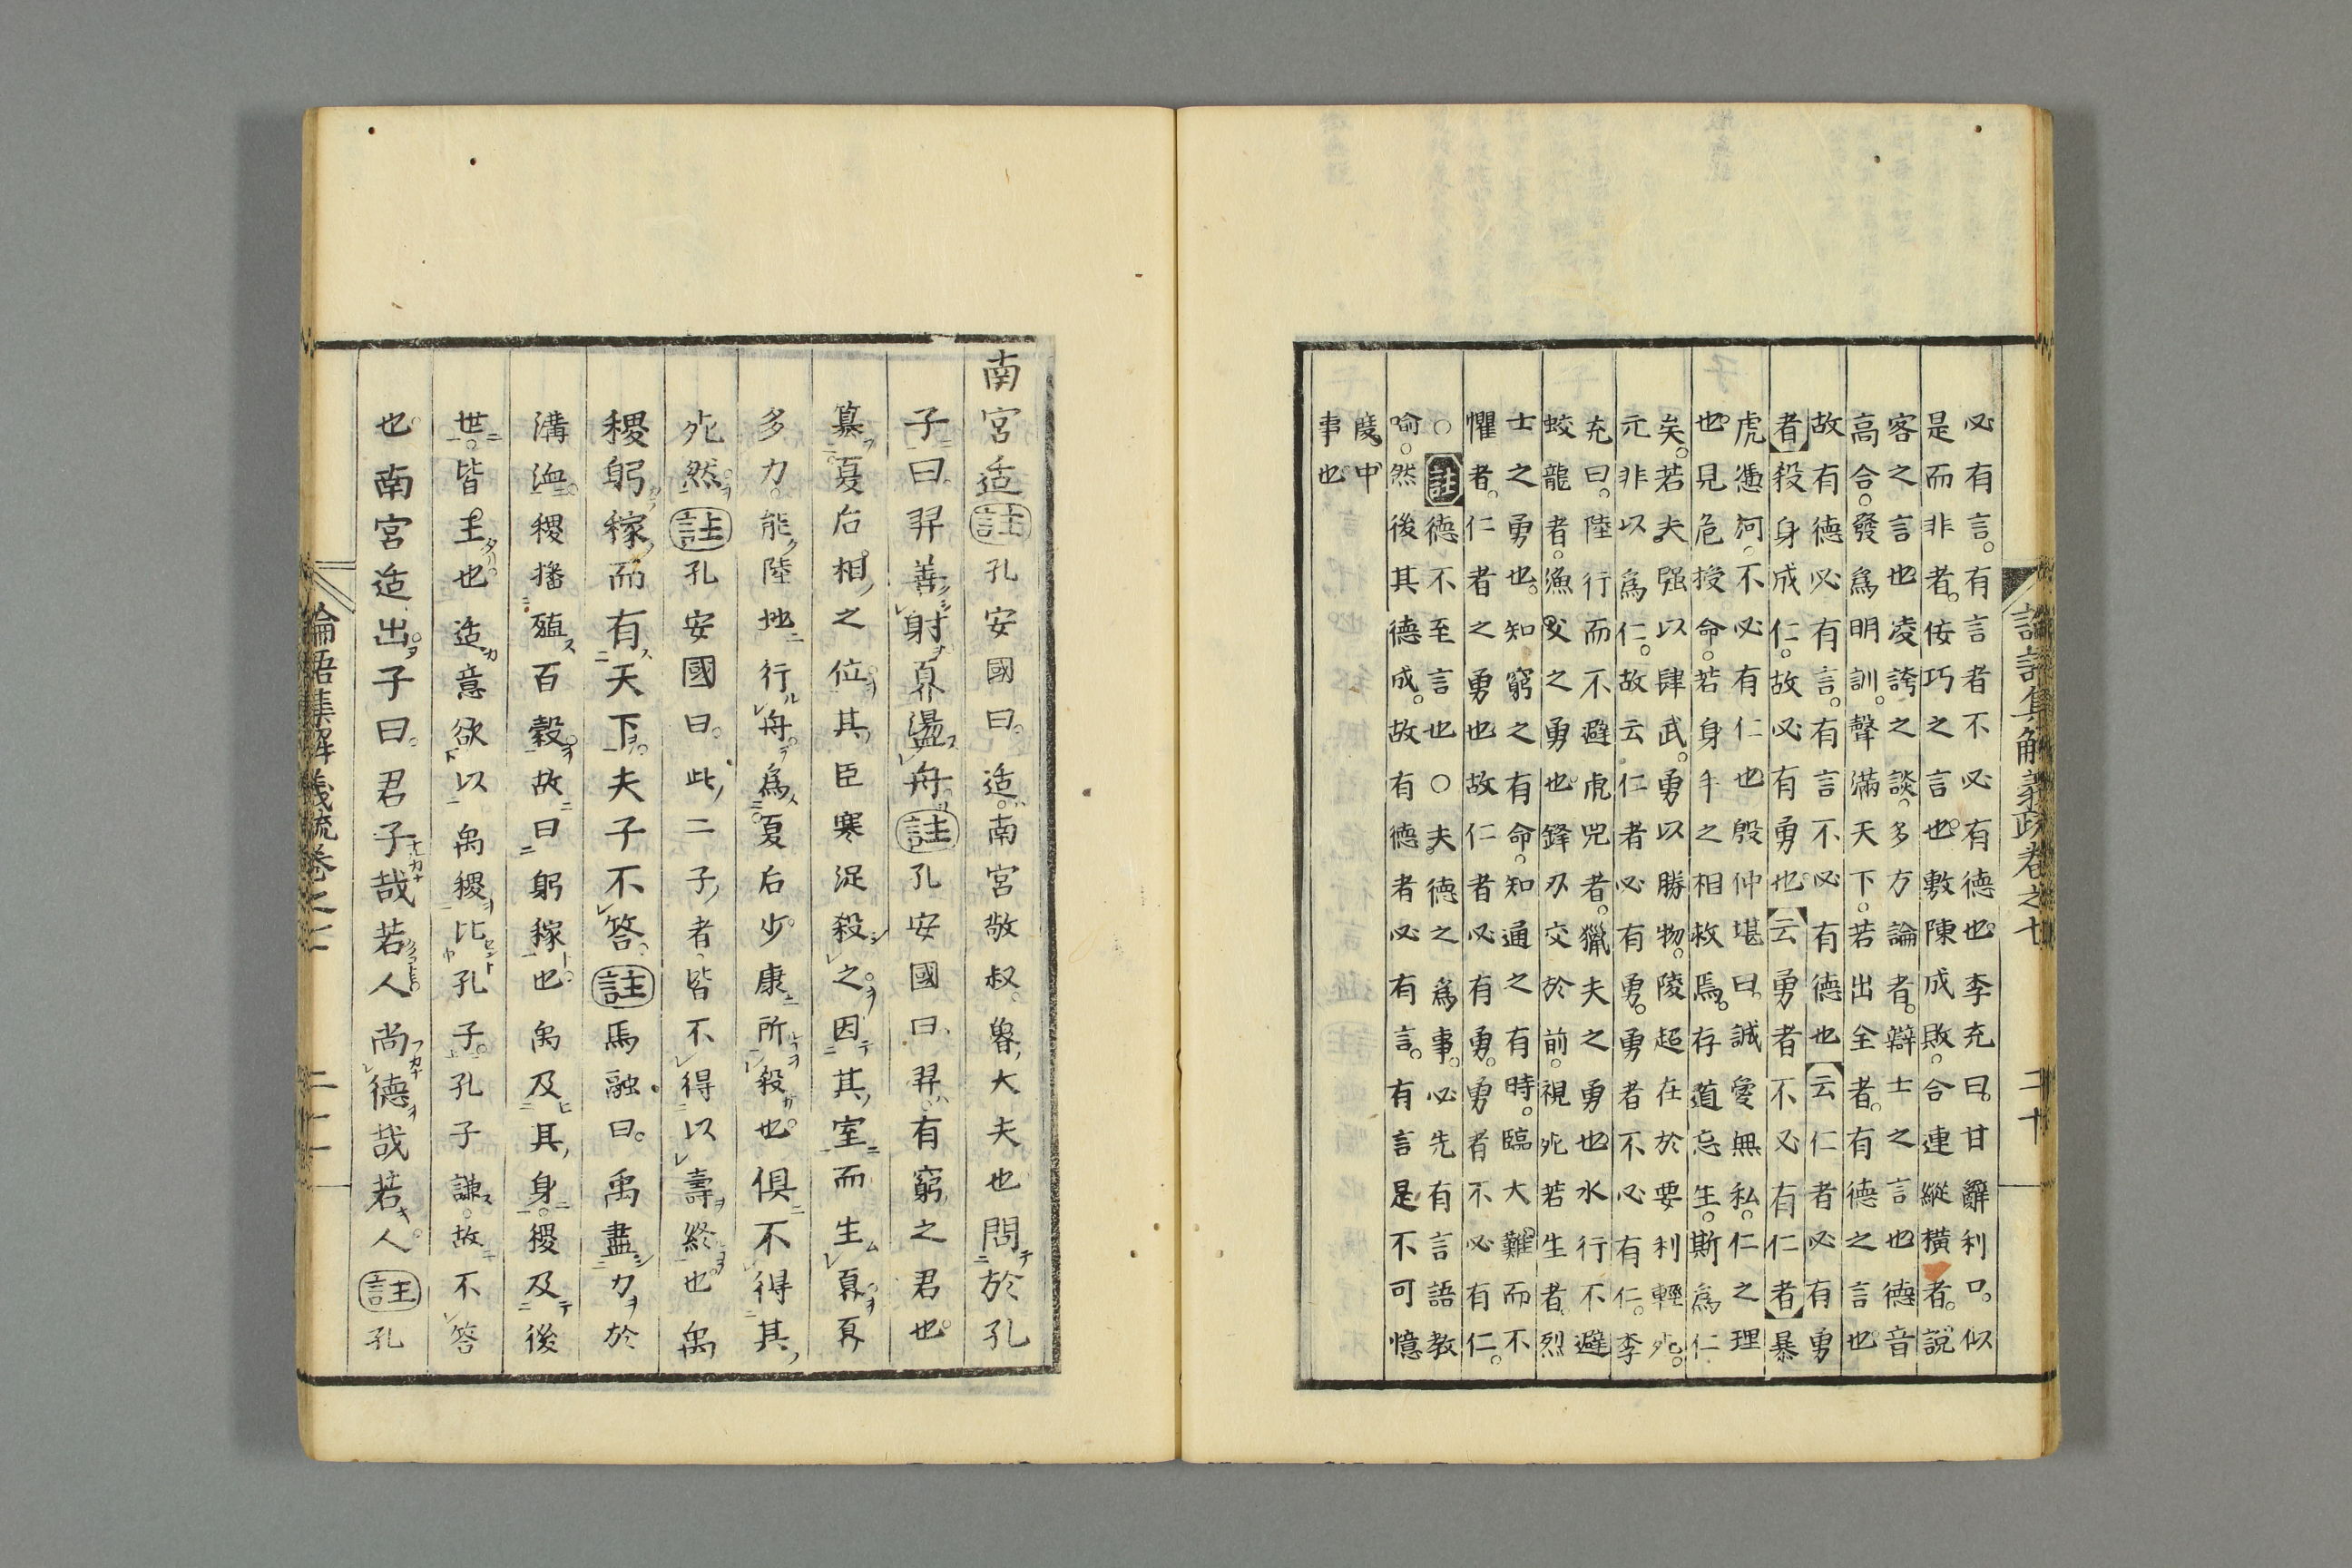 論語集解義疏卷之七 二十
必有言。有言者不必有德也。李充曰。甘辭利口。似
是而非者。佞巧之言也。敷陳成敗。合連縱橫者。說
客之言也凌誇之談。多方論者。辯士之言也德音
高合。發爲明訓。聲滿天下。若出全者。有德之言也。
故有德必有言。有言不必有德也云仁者必有勇
者殺身成仁。故必有勇也。云勇者不必有仁者暴
虎憑河。不必有仁也殷仲堪曰。誠愛無私。仁之理
也。見危授命。若身手之相救焉。存道忘生。斯爲仁
矣。若夫强以肆武。勇以勝物。陵超在於要利輕死。
元非以爲仁。故云仁者必有勇。勇者不必有仁。李
充曰。陸行而不避虎兕者。獵夫之勇也水行不避
蛟龍者。漁父之勇也。鋒刃交於前。視死若生者。烈
士之勇也。知窮之有命。知通之有時。臨大難而不
懼者。仁者之勇也故仁者必有勇。勇者不必有仁。
○註德不至言也○夫德之爲事。必先有言語教
喻。然後其德成。故有德者必有言。有言是不可憶
度。中
事也
南宮适註孔安國曰。适。南宮敬叔。魯大夫也問於孔
子曰。羿善射。奡盪舟。註孔安國曰。羿。有窮之君也。
篡夏后相之位。其臣寒浞殺之。因其室而生奡。奡
多力。能陸地行舟。爲夏后少康所殺也。俱不得其
死然。註孔安國曰。此二子者。皆不得以壽終也禹
稷躬稼而有天下。夫子不答。註馬融曰。禹盡力於
溝洫。稷播殖百穀。故曰躬稼也。禹及其身。稷及後
世。皆王也适意欲以禹稷比孔子。孔子謙。故不答
也。南宮适出。子曰。君子哉若人。尚德哉若人。註孔
論語集解義疏卷之七 二十一